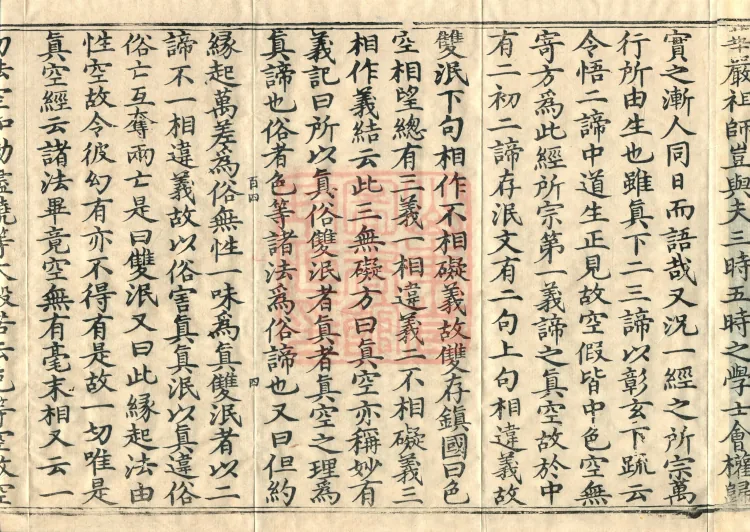 華嚴祖師豈與夫三時五時之學士會權歸
實之漸人同日而語哉又況一經之所宗萬
行所由生也雖眞下二三諦以彰玄下䟽云
令悟二諦中道生正見故空假皆中色空無
寄方爲此經所宗第一義諦之眞空故於中
有二初二諦存泯文有二句上句相違義故
雙泯下句相作不相礙義故雙存鎮國曰色
空相望總有三義一相違義二不相礙義三
相作義結云此三無礙方曰眞空亦稱妙有
義記曰所以眞俗雙泯者眞者眞空之理爲
眞諦也俗者色等諸法爲俗諦也又曰但約
百四
四
緣起萬差爲俗無性一味爲眞雙泯者以二
諦不一相違義故以俗害眞眞泯以眞違俗
俗亡互奪兩亡是曰雙泯又曰此緣起法由
性空故令彼幻有亦不得有是故一切唯是
眞空經云諸法畢竟空無有毫末相又云一
切法空如劫盡燒等大般若云色等空故空